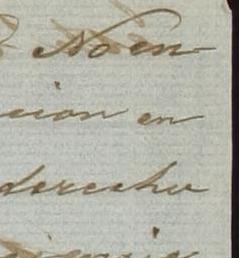 No en-
cion en
derecho